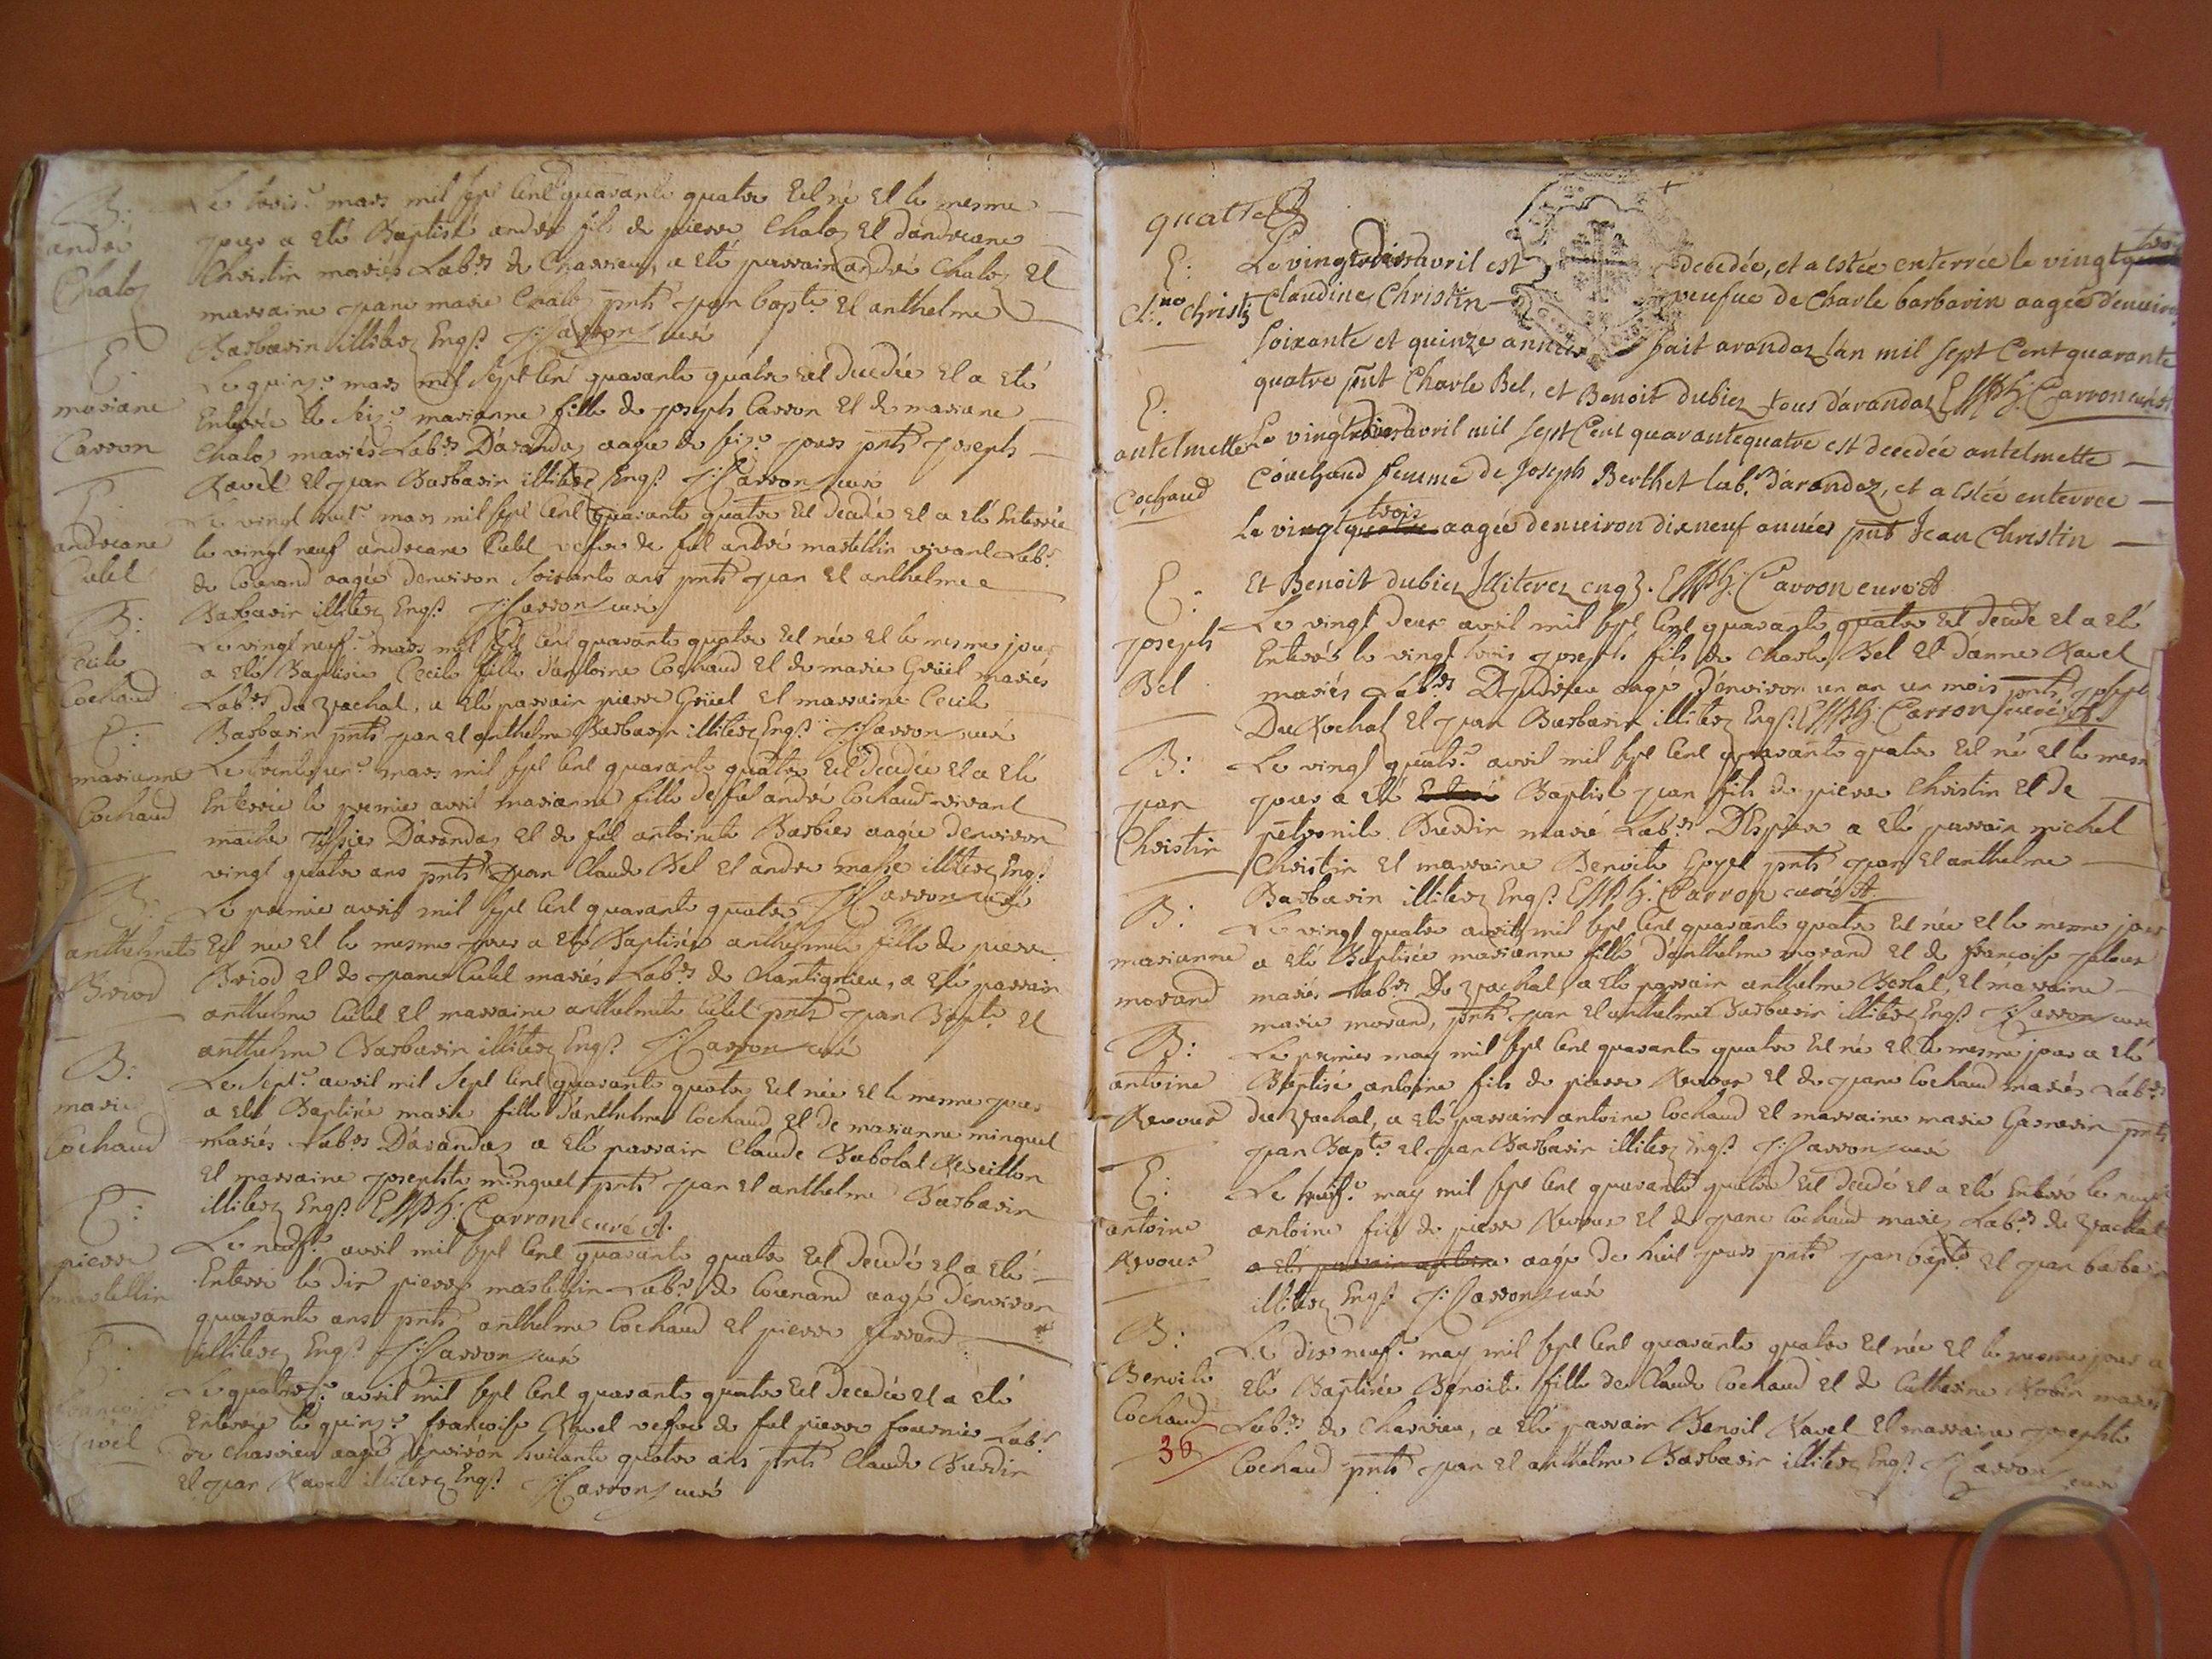 B:
andré
Chaloz
Le trois.e mars mil sept Cent quarante quatre Est né Et le mesme
jour a Eté Baptisé andré fils de pierre Chaloz Et dandreane
Christin mariés Lab.rs de Chavrieu, a Eté parrain andré Chaloz Et
marraine jeane marie Chaloz pnts jean bapt.e Et anthelme
Barbarin illiterez Enqs J: Carron curé
E:
mariane
Carron
Le quinz.e mars mil sept Cent quarante quatre Est decedée Et a Eté
Enterrée le seiz.e marianne fille de joseph Carron Et de mariane
Chaloz mariés Lab.rs D'arandaz aagée de seiz.e jours pnts joseph
Ravel Et jean Barbarin illiterez Enqs J: Carron curé
E:
andreane
Cutel
Le vingt huit.e mars mil sept Cent quarante quatre Est decedée Et a Eté Enterrée
le vingt neuf andreane Cutel vefve de fut andré martellin vivant Lab.r
de Counand aagée denviron soixante ans pnts jean Et anthelme
Barbarin illiterez Enqs J: Carron curé
B:
Cecile
Cochaud
Le vingt neuf.e mars mil sept Cent quarante quatre Est née Et le mesme jour
a Eté Baptisée Cecile fille d'antoine Cochaud Et de marie Grüel mariés
Lab.rs du vachat, a Eté parrain pierre Grüel Et marraine Cecile
Barbarin pnts jean et anthelme Barbarin illiterez Enqs J: Carron curé
E:
marianne
Cochaud
Le trente un.e mars mil sept Cent quarante quatre Est decedée Et a Eté
Enterrée le premier avril marianne fille de fut andré Cochaud vivant
maitre tissier D'arandaz et de fut antoinete Barbier aagée denviron
vingt quatre ans pnts jean Claude Bel et andré illiterez Enqs
J: Carron curé
B:
anthelmete
Briod
Le premier avril mil sept Cent quarante quatre
Est née Et le mesme jour a Eté Baptisée anthelmete fille de pierre
Briod et de jeane Cutel mariés Lab.rs de Chantignieu, a Eté parrain
anthelme Cutel Et marraine anthelmete Cutel pnts jean Bapt.e Et
anthelme Barbarin illiterez Enqs J: Carron curé
B:
marie
Cochaud
Le sept.e avril mil sept Cent quarante quatre Est née Et le mesme jour
a Eté Baptisée marie fille d'anthelme Cochaud Et de marianne minguet
mariés Lab.rs D'arandaz a Eté parrain Claude Babolat Reveillon
Et marraine josephte minguet pnts jean et anthelme Barbarin
illiterez Enqs J: Carron curé
E:
pierre
martellin
Le neuf.e avril mil sept Cent quarante quatre Est decedé et a Eté
Enterré le dix pierre martellin Lab.r de Counand aagé d'environ
quarante ans pnts anthelme Cochaud et pierre ferrand
illiterez Enqs J: Carron curé
E:
francoise
Ravel
Le quatorz.e avril mil sept Cent quarante quatre Est decedée Et a Eté
Enterrée le quinz.e francoise Ravel vefve de fut pierre fournier Lab.r
de Chavrieu aagée denviron huitante quatre ans pnts Claude Burdin
et jean Ravel illiterez Enqs J: Carron curé
quatre
E:
cl.ne Christ
Le vingtdeux avril est decedée, et a Estée enterrée le vingt trois
Claudine Christin veufue de Charle barbarin aagée denuiron
soixante et quinze années fait arandaz lan mil sept Cent quarante
quatre pnt Charle Bel, et Benoit dubiez tous d'arandaz Carron curé
E.
antelmette
Cochaud
Le vingtdeux avril mil sept Cent quarantequatre est decedée antelmette
Couchaud femme de Joseph Berthet lab.r d'arandaz, et a Estée enterree
trois
Le vingt quatre aagée denuiron dixneuf années pnt Jean Christin
Et Benoit dubiez Illiterez enqz. Carron curé
E:
joseph
Bel
Le vingt deux avril mil sept Cent quarante quatre Est decedé et a Eté
Enterré le vingt trois joseph fils de Charle Bel Et d'anne Ravel
mariés Lab.rs aagé d'environ un an un mois pnts joseph
Du Rochat Et jean Barbarin illiterez Enqs Carron curé
B:
jean
Christin
Le vingt quatr.e avril mil sept Cent quarante quatre Est né Et le mesme
jour a Eté Baptisé jean fils de pierre Christin et de
petronile Burdin marié Lab.rs a Eté parrain michel
Christin Et marraine Benoite Goyet pnts jean Et anthelme
Barbarin illiterez Enqs Carron curé
B:
marianne
morand
Le vingt quatre avril mil sept Cent quarante quatre Est née Et le mesme jour
a Eté Baptisée marianne fille d'anthelme morand et de francoise
mariés Lab.rs Du vachat, a Eté parrain anthelme Et marraine
marie morand, pnts jean Et anthelme Barbarin illiterez Enqs J: Carron curé
B:
antoine
Revour
Le premier may mil sept Cent quarante quatre Est né Et le mesme jour a Eté
Baptisé antoine fils de pierre Revour Et de jeane Cochaud mariés Lab.rs
du vachat, a Eté parrain antoine Cochaud Et marraine marie pnts
jean Bapt.e et jean Barbarin illiterez Enqs J: Carron curé
E:
antoine
Revour
Le huit.e may mil sept Cent quarante quatre Est decedé Et a Eté Enterré le neuf
antoine fils de pierre Revour Et de jeane Cochaud mariez Lab.rs du vachat
a Eté parrain antoine aagé de huit jours pnts jean bapt.e et jean barbarin
illiterez Enqs J: Carron curé
B:
Benoite
Cochaud
36
Le dix neuf.e may mil sept Cent quarante quatre Est née Et le mesme jour a
Eté Baptisée Benoite fille de Claude Cochaud Et de Catherine Robin mariés
Lab.rs de Chavrieu, a Eté parrain Benoit Ravel Et marraine josephte
Cochaud pnts jean et anthelme Barbarin illiterez Enqs J: Carron curé